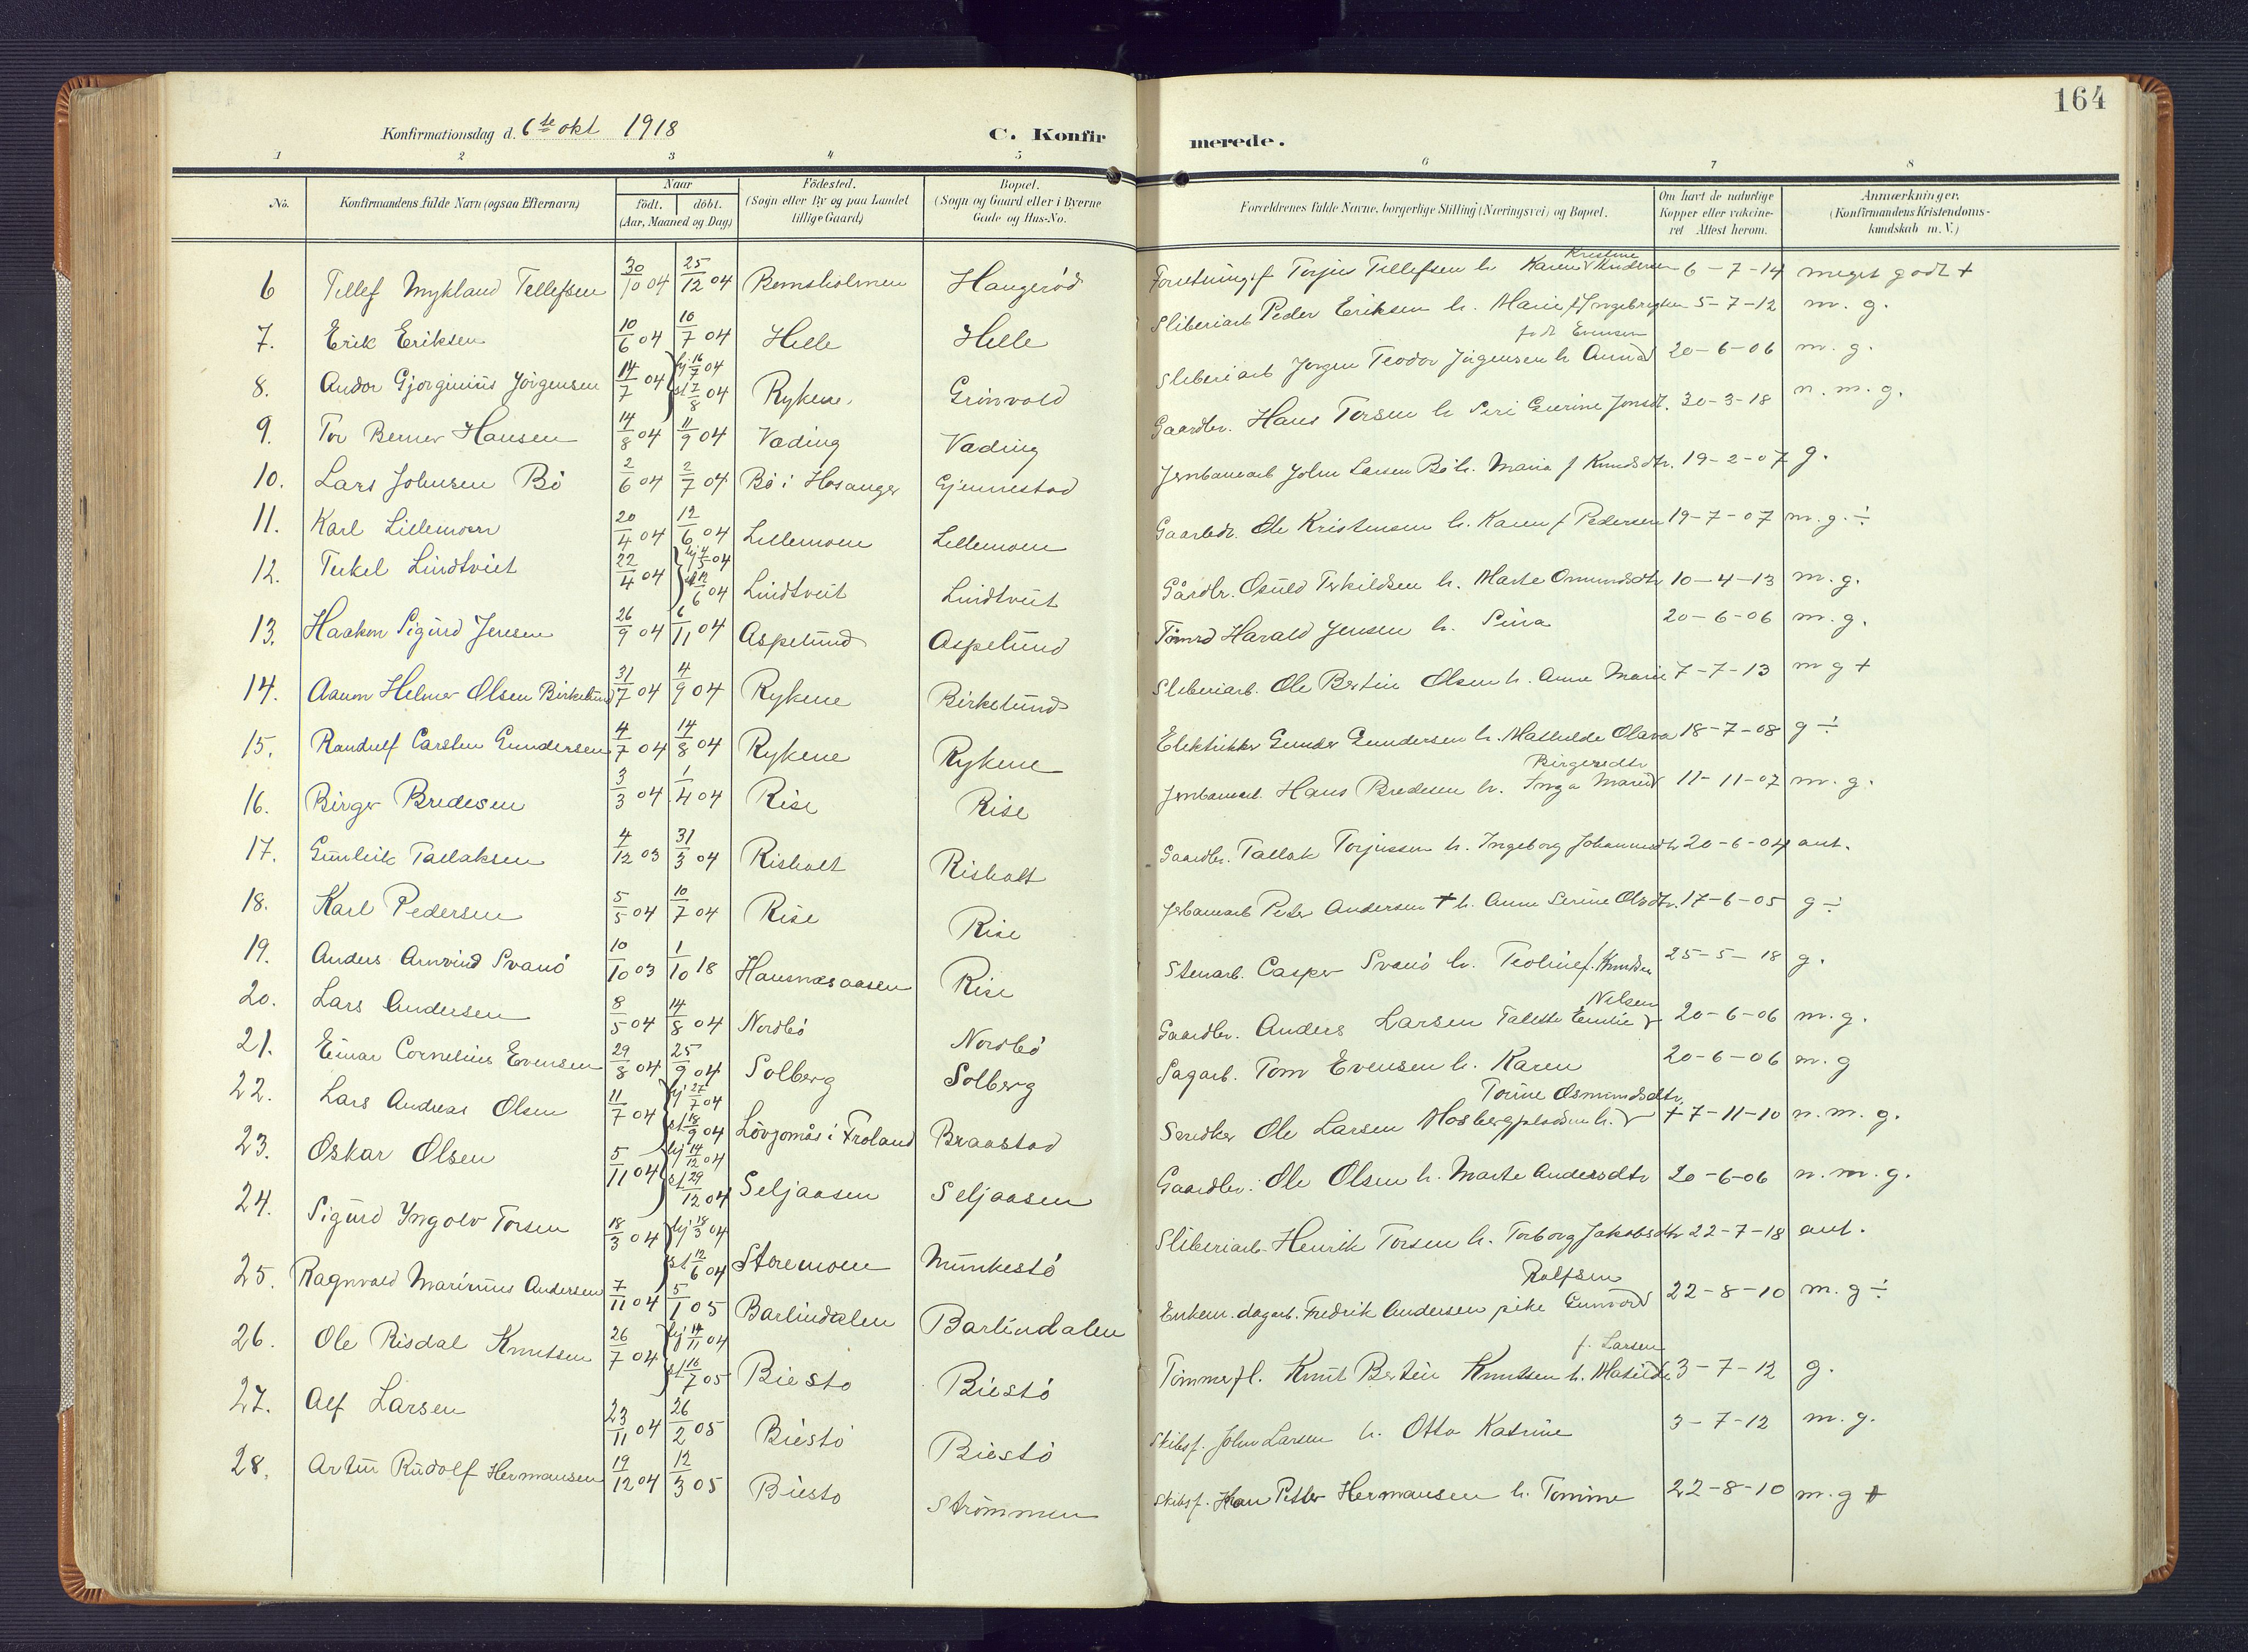 164
Konfirmationsdag d. 6te okt 1918 C. Konfirmerede.
1 2 3 4 5 6 7 8
No. Konfirmandens fulde Navn (ogsaa Efternavn) Naar födt. döbt. (Aar, Maaned og Dag) Födested. (Sogn eller By og paa Landet tillige Gaard) Bopæl. (Sogn og Gaard eller i Byerne Gade og Hus-No. Forældrenes fulde Navne, borgerlige Stilling (Næringsvei) og Bopæl. Om havt de naturlige Kopper eller vakcineret Attest herom. Anmærkninger. (Konfirmandens Kristendomskundskab m. V.)
6 Tellef Mykland Tellefsen 30/10 04 25/12 04 Bomsholmen Haugerød Forretningsf Torjus Tellefsen h. Karen Kristine Andersen 6-7-14 meget godt +
7. Erik Eriksen 10/6 04 10/7 04 Helle Helle Sliberiarb Peder Eriksen h. Marie f Ingebrigtsen 5-7-12 m. g.
8. Andor Gjorginius Jörgensen 14/7 04 hj 16/7 04 st 7/8 04 Rykene Grönvold Sliberiarb Jorgen Teodor Jörgensen h Anna født Evensen 20-6-06 m. g.
9. Tor Berner Hansen 14/8 04 11/9 04 Vading Vading Gaardbr. Hans Torsen h Siri Gurine Jonsdt. 30-3-18 n. m. g.
10. Lars Johnsen Bö 2/6 04 2/7 04 Bö i Hosanger Gjennestad Jernbanearb John Larsen Bö h. Maria f Knudsdtr. 19-2-07 g.
11. Karl Lillemoen 20/4 04 12/6 04 Lillemoen Lillemoen Gaardbr. Ole Kristensen h. Karen f Pedersen 19-7-07 m. g. ÷
12. Terkel Lindtveit 22/4 04 04 st 12/6 04 Lindtveit Lindtveit Gårdbr. Osuld Terkildsen h. Marte Omundsdtr 10-4-13 m. g.
13. Haakon Sigurd Jensen 26/9 04 6/11 04 Aspelund Aspelund Tömrd Harald Jensen h. Sina 20-6-06 m. g.
14. Aanon Helmer Olsen Birkelund 31/7 04 4/9 04 Rykene Birkelund Sliberiarb. Ole Bertin Olsen h. Anne Marie 7-7-13 m g +
15. Randulf Carsten Gundersen 4/7 04 14/8 04 Rykene Rykene Elektriker Gunder Gundersen h. Mathilde Olava 18-7-08 g ÷
16. Birger Bredesen 3/3 04 1/4 04 Rise Rise Jernbanearb. Hans Bredesen h. Inga Marie Birgersdtr 11-11-07 m. g.
17. Gunleik Tallaksen 4/12 03 31/3 04 Risholt Risholt Gaardbr. Tallak Torjussen h. Ingeborg Johannesdtr 20-6-04 ant.
18. Karl Pedersen 5/5 04 10/7 04 Rise Rise Jerbanearb Peder Andersen + h. Anne Serine Olsdtr. 17-6-05 g ÷
19. Anders Arnvind Svanö 10/10 03 1/10 18 Hausnæsaasen Rise Stenarb. Casper Svanö h. Teoline f. Knudsen 25-5-18 g.
20. Lars Andersen 8/5 04 14/8 04 Nordbö Nordbö Gaardbr. Anders Larsen Talette Emilie Nelsen 20-6-06 m. g.
21. Einar Cornelius Evensen 29/8 04 25/9 04 Solberg Solberg Sagarb. Tom Evensen h. Karen 20-6-06 m. g
22. Lars Andreas Olsen 11/7 04 hj 27/7 04 st 18/9 04 Lövjomås i Froland Braastad Snedker Ole Larsen h. Torine Osmundsdtr. + 7-11-10 n. m. g.
23. Oskar Olsen 5/11 04 hj 14/12 04 st 29/12 04 Seljaasen Seljaasen Gaardbr. Ole Olsen h. Marte Andersdtr 20-6-06 n. m. g.
24. Sigurd Yngolv Torsen 18/3 04 hj 18/3 04 st 12/6 04 Storemoen Munkestö Sliberiarb. Henrik Torsen h. Torborg Jakobsdtr 22-7-18 ant.
25. Ragnvald Marinius Andersen 7/11 04 5/1 05 Barlindalen Barlindalen Enkem. dagarb. Fredrik Andersen pike Gunvord Rolfsen 22-8-10 m. g ÷
26. Ole Risdal Knutsen 26/7 04 hj 14/11 04 st 16/7 05 Biesto Biestö Tömmerfl. Knut Bertin Knutsen h. Matilde f. Larsen 3-7-12 g.
27. Alf Larsen 23/11 04 26/2 05 Biestö Biestö Skibsf. John Larsen h. Otto Katrine 3-7-12 m. g.
28. Artur Rudolf Hermansen 19/12 04 12/3 05 Biesto Strömmen Skibsf. Petter Hermansen h. Tomine 22-8-10 m. g +